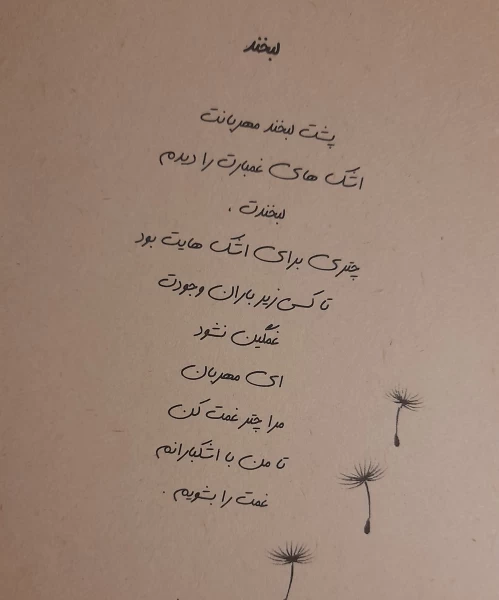 لبخند
پشت لبخند مهربانت
اشک های غمبارت را دیدم
لبخندت .
چتری برای اشک هایت بود
تا کسی زیر باران وجودت
غمگین نشود
ای مهربان
مرا چتر غمت کن
تا من با اشکبارانم
غمت را بشویم .